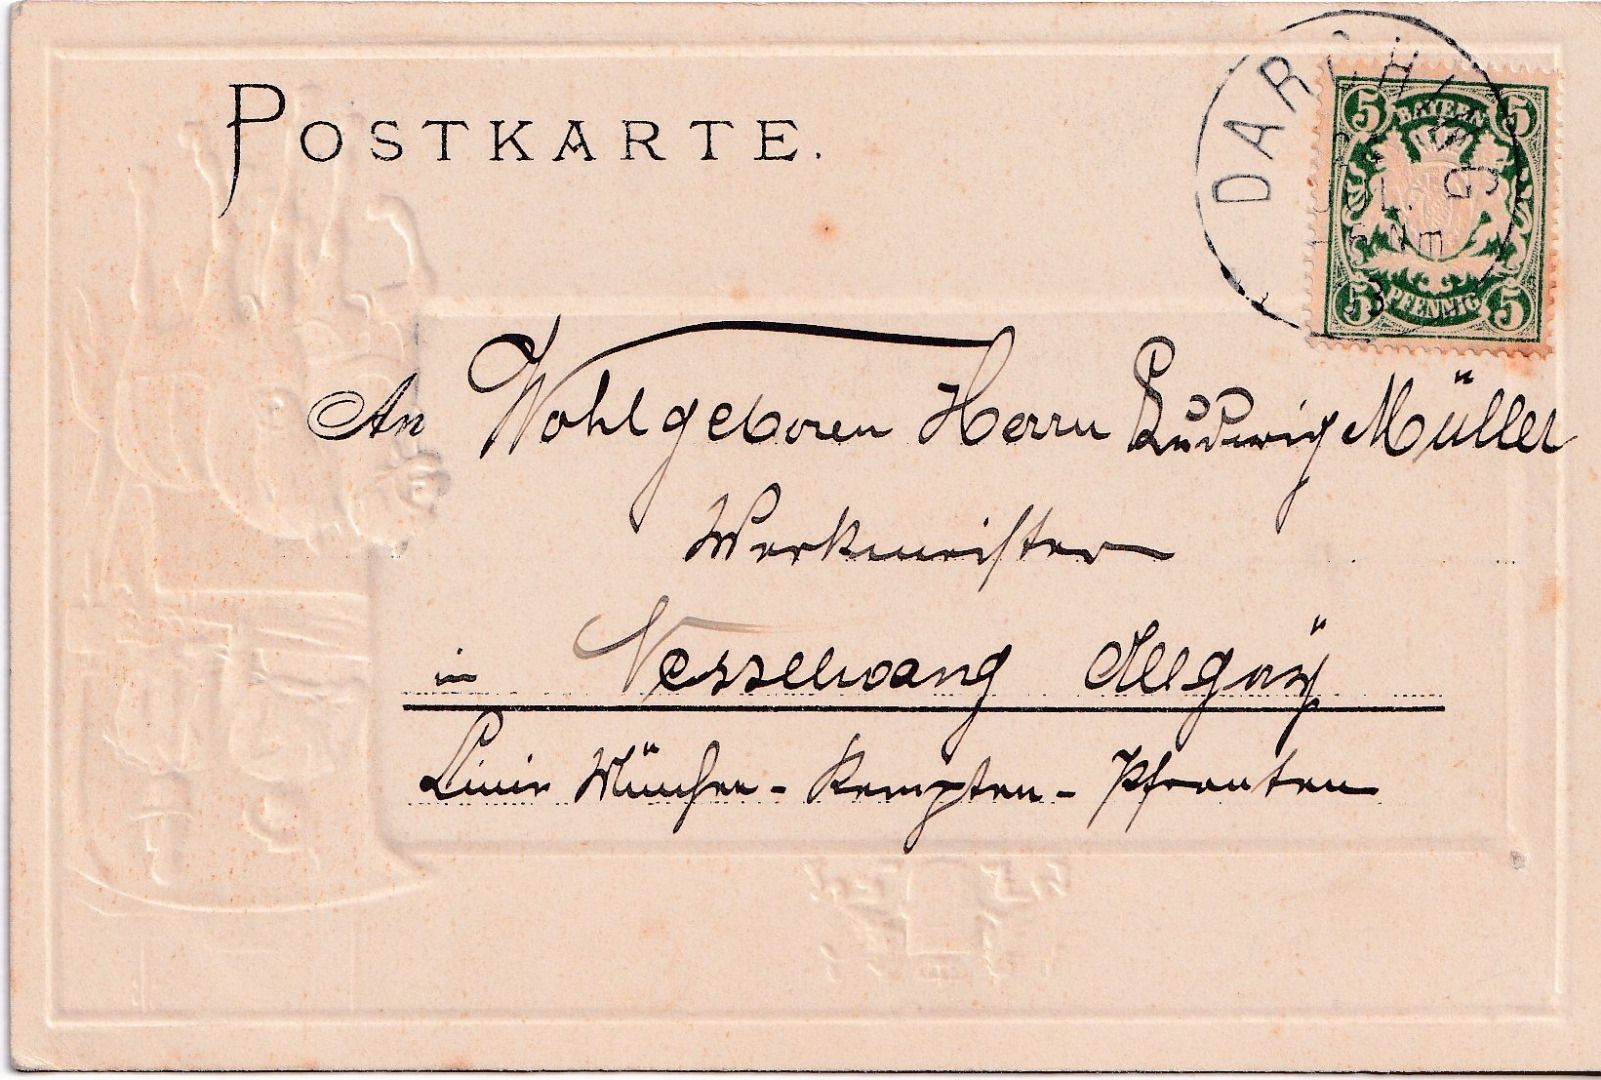 POSTKARTE.
DARCHING
JUL.
5 Nm
5 BAYERN 5
5 PFENNIG 5
An Wohlgeboren Herrn Ludwig Müller
Werkmeister
in Nesselwang Allgäu
Linie München - Kempten - Pfronten